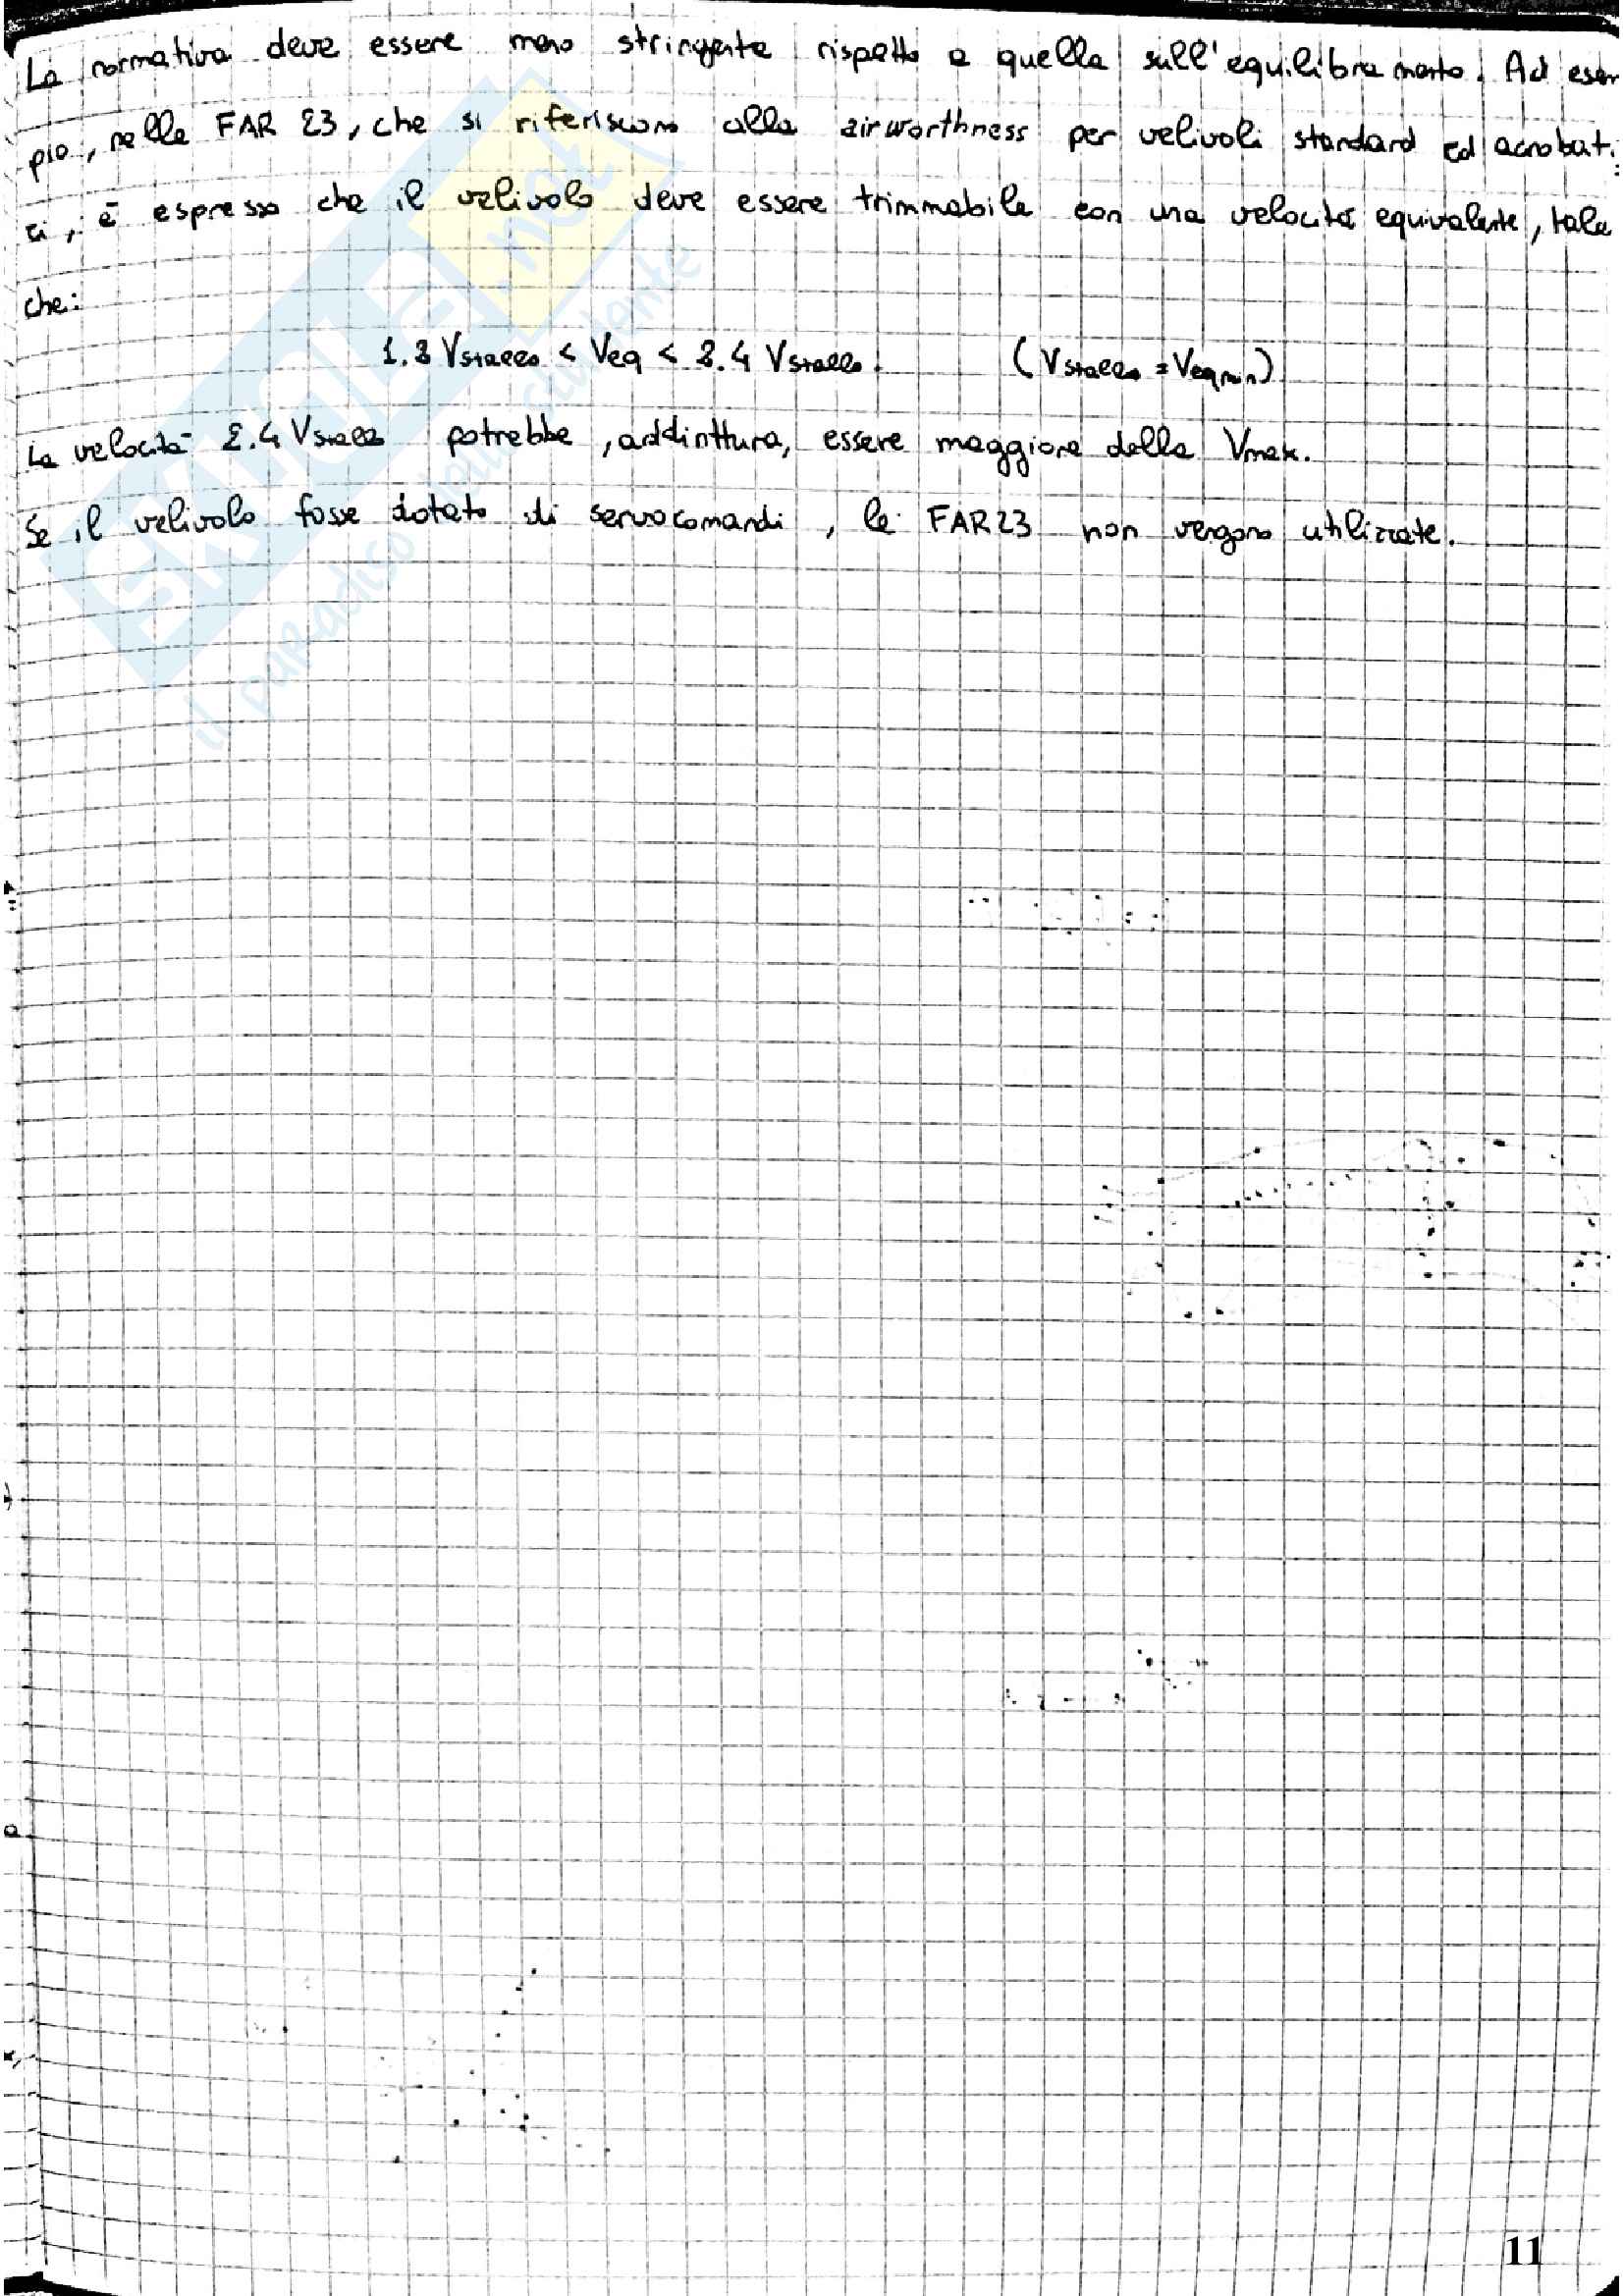 La normativa deve essere meno stringente rispetto a quella sull'equilibramento. Ad esem
pio, nelle FAR 23, che si riferiscono alla airworthness per velivoli standard ed acrobati
ci, è espresso che il velivolo deve essere trimmabile con una velocità equivalente, tale
che:
1.3 Vstallo < Veq < 2.4 Vstallo. (Vstallo = Veqmin)
La velocità 2.4 Vstallo potrebbe, addirittura, essere maggiore della Vmax.
Se il velivolo fosse dotato di servocomandi, le FAR23 non vengono utilizzate.
SKUOLA.net
il paradiso dello studente
11